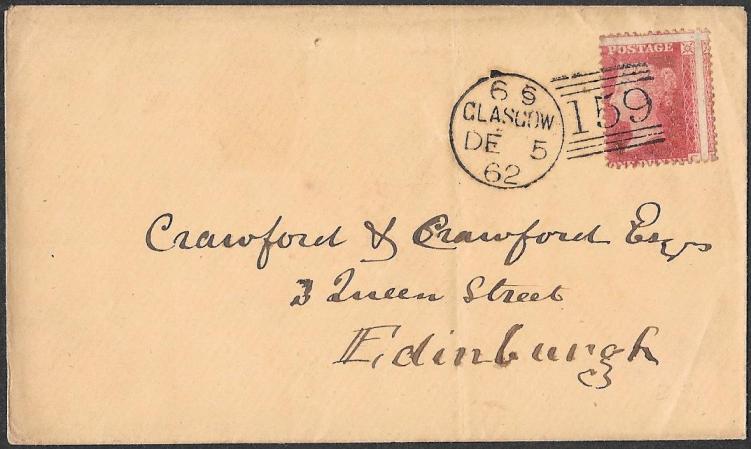 POSTAGE
6 5
GLASGOW
DE 5
62
159
Crawford & Crawford Esqrs
3 Queen Street
Edinburgh